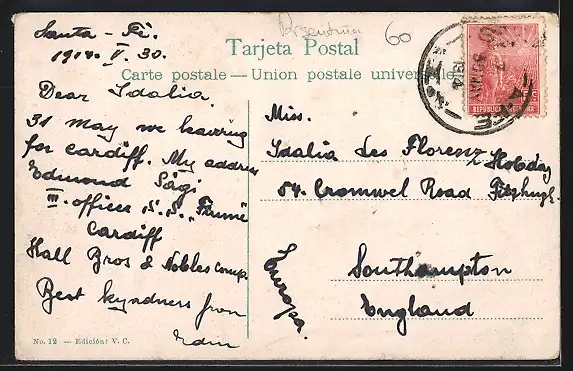 Argentina
60
Tarjeta Postal
Carte postale — Union postale universelle
Santa - Fé.
1914. V. 30.
Dear Idalia.
31 May we leaving
for Cardiff. My address
Edmond Sági
III. officer S.S. "Fiume
Cardiff
Hall Bros & Nobles comp.
Best kyndness from
Edm
No. 12 — Edición: V. C.
Miss.
Idalia des Florenz
Hobday
54. Cromwel Road Fitzhugh.
Southampton
England
Europa.
REPUBLICA ARGENTINA
1914